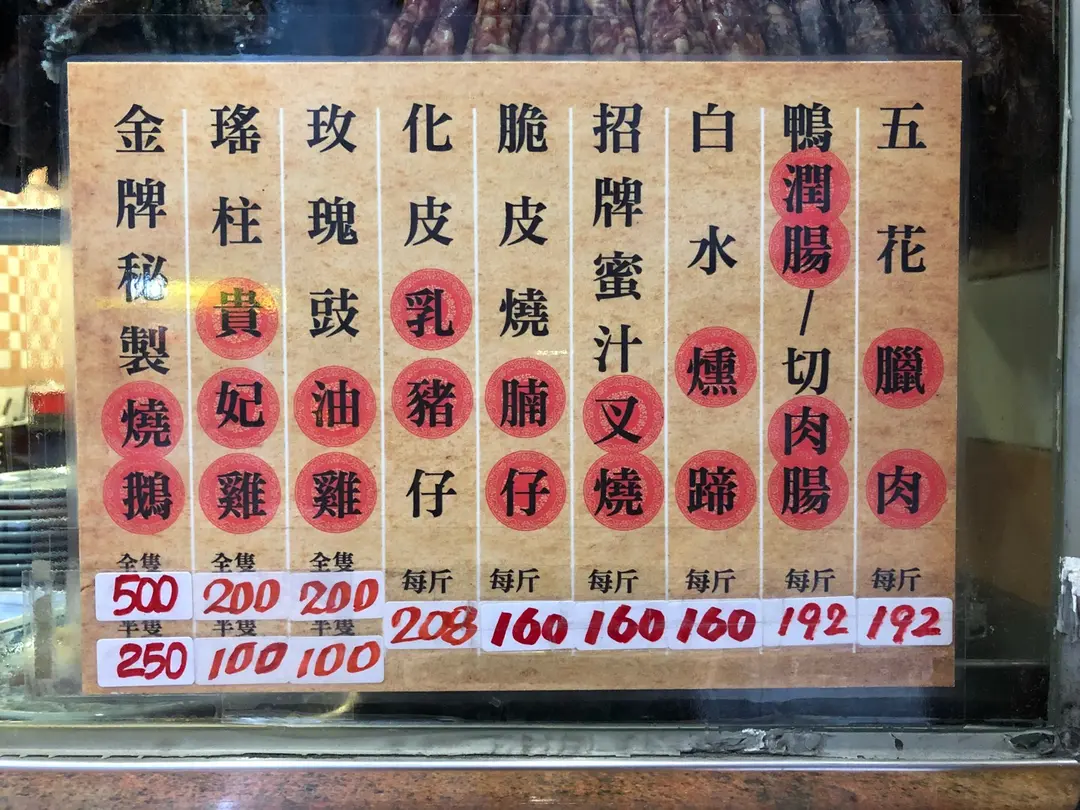 金牌秘製燒鵝
全隻
500
半隻
250
瑤柱貴妃雞
全隻
200
半隻
100
玫瑰豉油雞
全隻
200
半隻
100
化皮乳豬仔
每斤
208
脆皮燒腩仔
每斤
160
招牌蜜汁叉燒
每斤
160
白水燻蹄
每斤
160
鴨潤腸/切肉腸
每斤
192
五花臘肉
每斤
192